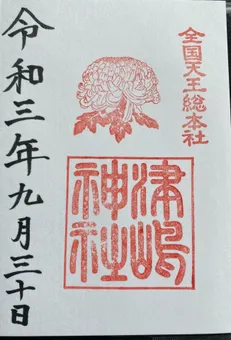 全国天王総本社
津嶋神社
令和三年九月三十日